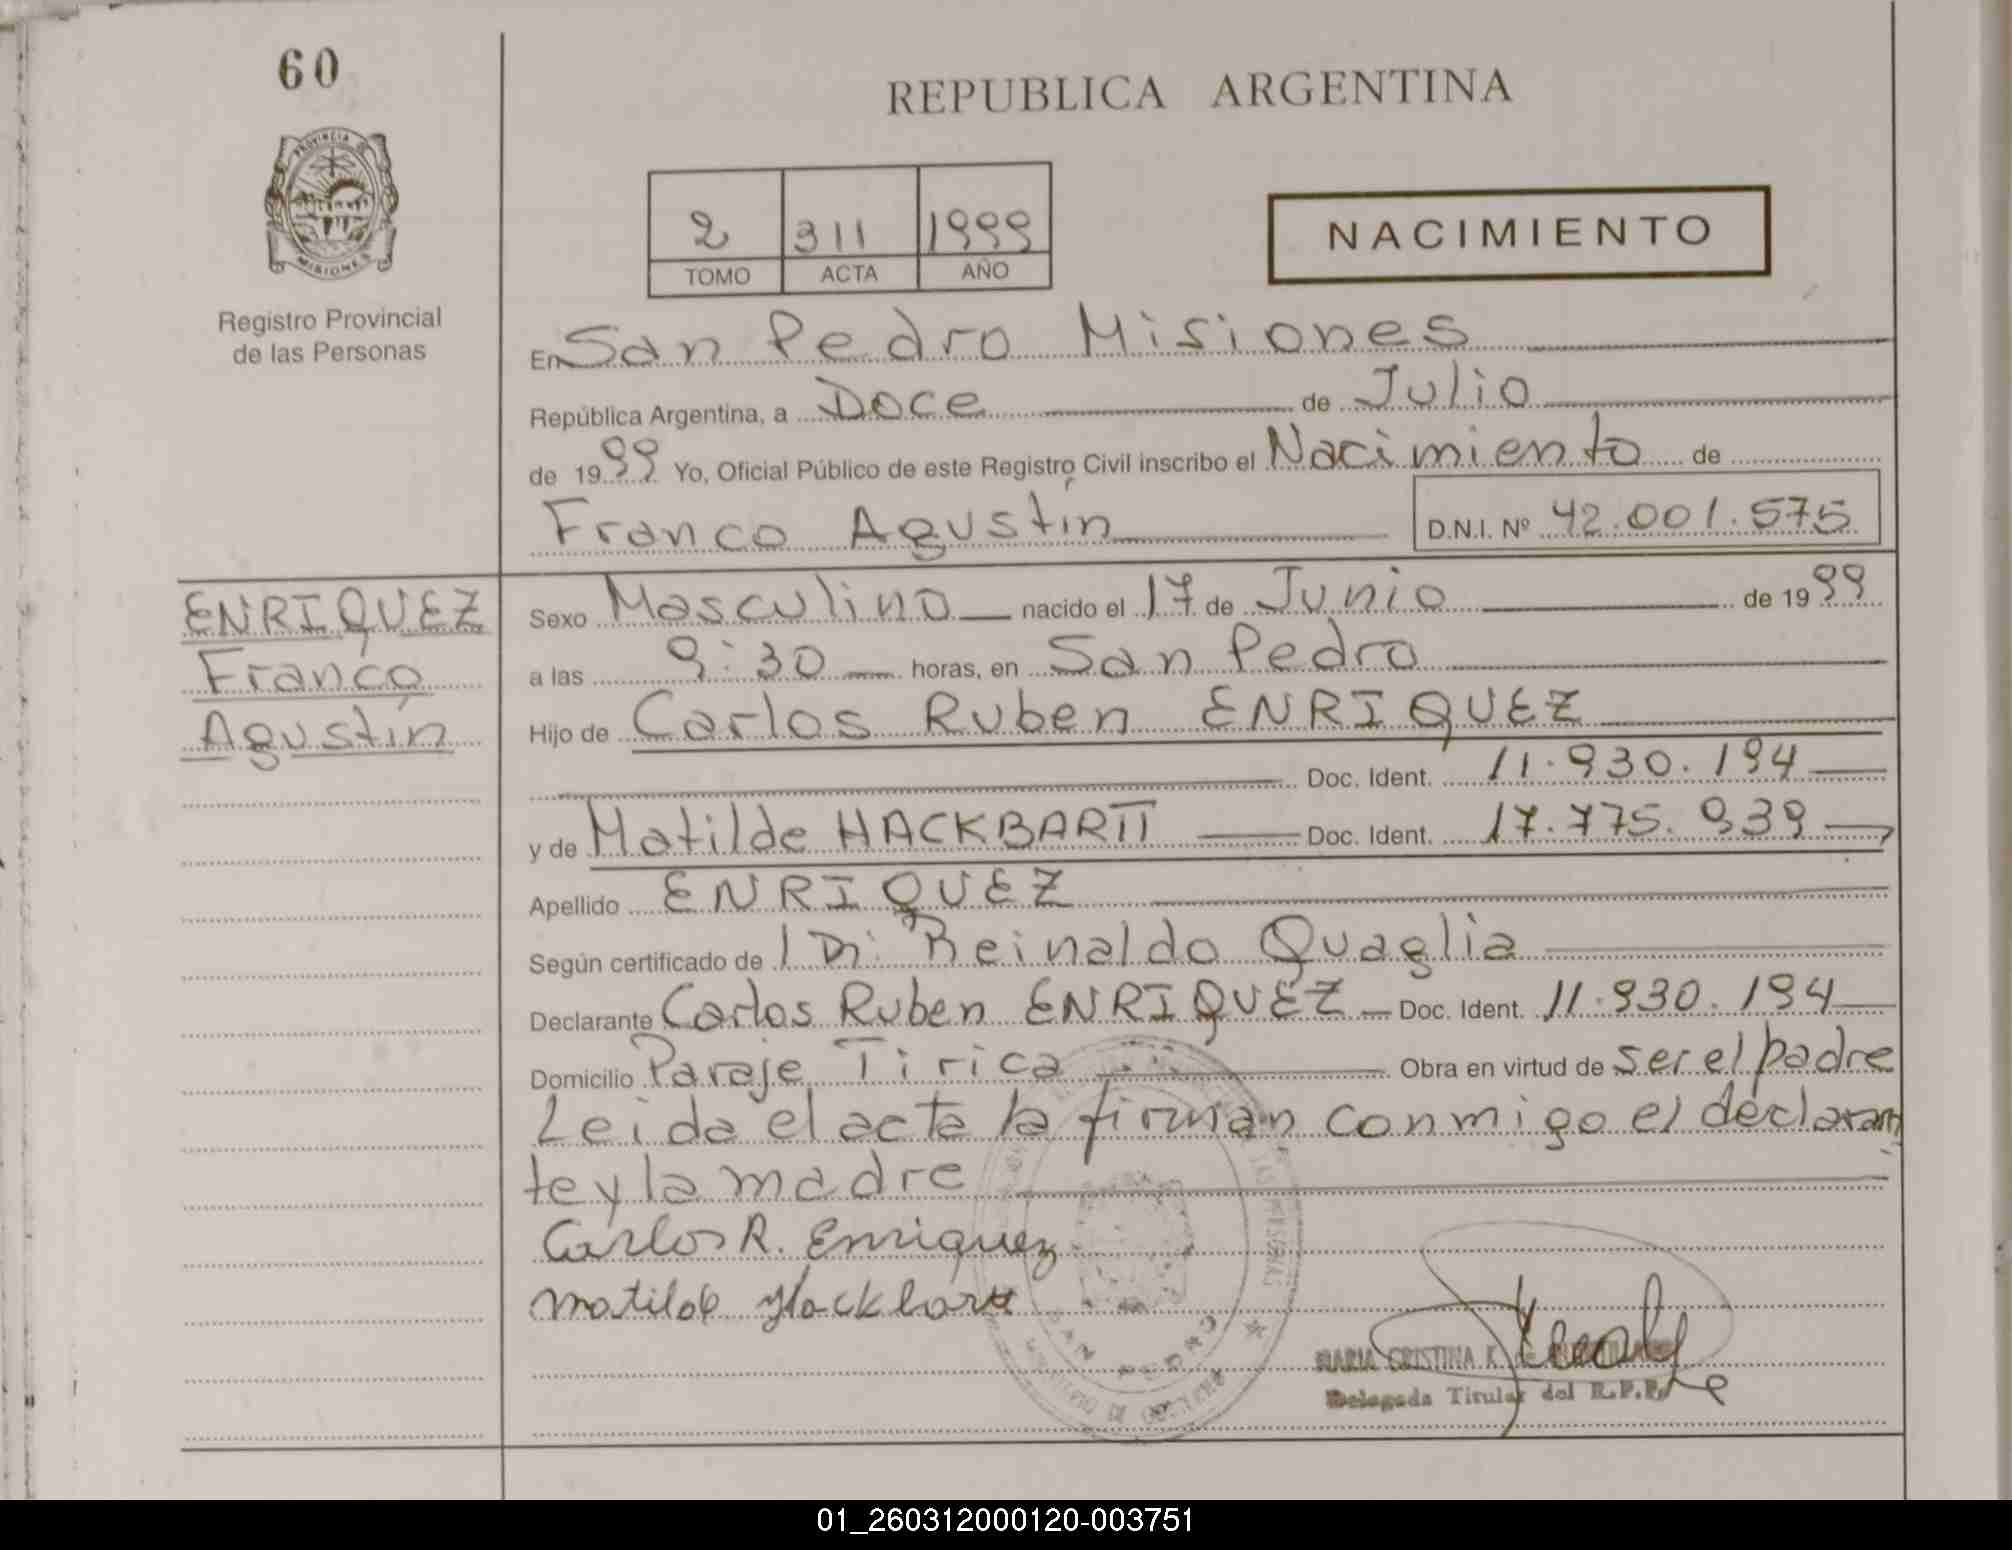 60
REPUBLICA ARGENTINA
PROVINCIA DE
MISIONES
Registro Provincial
de las Personas
2 311 1999
TOMO ACTA AÑO
NACIMIENTO
En San Pedro Misiones
República Argentina, a Doce de Julio
de 1999 Yo, Oficial Público de este Registro Civil inscribo el Nacimiento de
Franco Agustín D.N.I. Nº 42.001.575
ENRIQUEZ
Franco
Agustín
Sexo Masculino nacido el 17 de Junio de 1999
a las 9:30 horas, en San Pedro
Hijo de Carlos Ruben ENRIQUEZ
Doc. Ident. 11.930.194
y de Matilde HACKBARTT Doc. Ident. 17.775.939
Apellido ENRIQUEZ
Según certificado de Reinaldo Quaglia
Declarante Carlos Ruben ENRIQUEZ Doc. Ident. 11.930.194
Domicilio Paraje Tirica Obra en virtud de ser el padre
Leida el acta la firman conmigo el declaran
te y la madre
Carlos R. Enriquez
Matilde Hackbartt
SAN PEDRO
MARIA CRISTINA K. de
Delegada Titular del R.P.P.
01_260312000120-003751